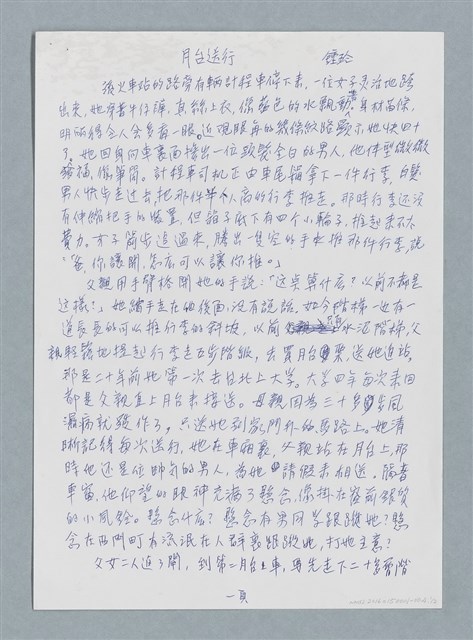 月台送行　　鍾玲
後火車站的路旁有輛計程車停下來,一位女子靈活地踏
出來,她穿著牛仔褲,真絲上衣,像藍色的水飄動著,身材苗條,
明丽得令人会多看一眼。近視眼角的幾條紋路顯示她快四十
了。她回身向車裏面擔出一位頭髮全白的男人,他体型微微
發福,像單筒。計程車司机正由車尾箱拿下一件行李,白髮
男人快步走过去,把那件半人高的行李推走。那時行李还沒
有伸縮把手的裝置,但箱子底下有四个小輪子,推起来不太
費力。女子簡步追過來,騰出一隻空的手也推那件行李,說
「爸,你讓開,怎麼可以讓你推。」
父親用手臂格開她的手說:「这点算什么?以前不都是
这樣?」她踏手走在他後面,沒有說話。如今階梯一边有一
道長長的可以推行李的斜坡,以前是水泥階梯,父
親輕鬆地提起行李走五步階級,去買月台票,送她进站。
那是二十年前她第一次去台北上大学。大学四年每次来回
都是父親直上月台来接送。母親因為三十多歲風
濕病就發作了,只送她到家門外的馬路上。她清
晰記得每次送行,她在車廂裏,父親站在月台上,那
時他还是位帥氣的男人,為她請假来相送。隔著
車窗,他仰望的眼神充滿了懸念,像掛在窗前銀質
的小風鈴。懸念什麼?懸念有男同学跟蹤她?懸
念在西門町有流氓在人群裏跟蹤她,打她主意?
父女二人进了閘,到第二月台上車,要先走下二十多層階
一頁